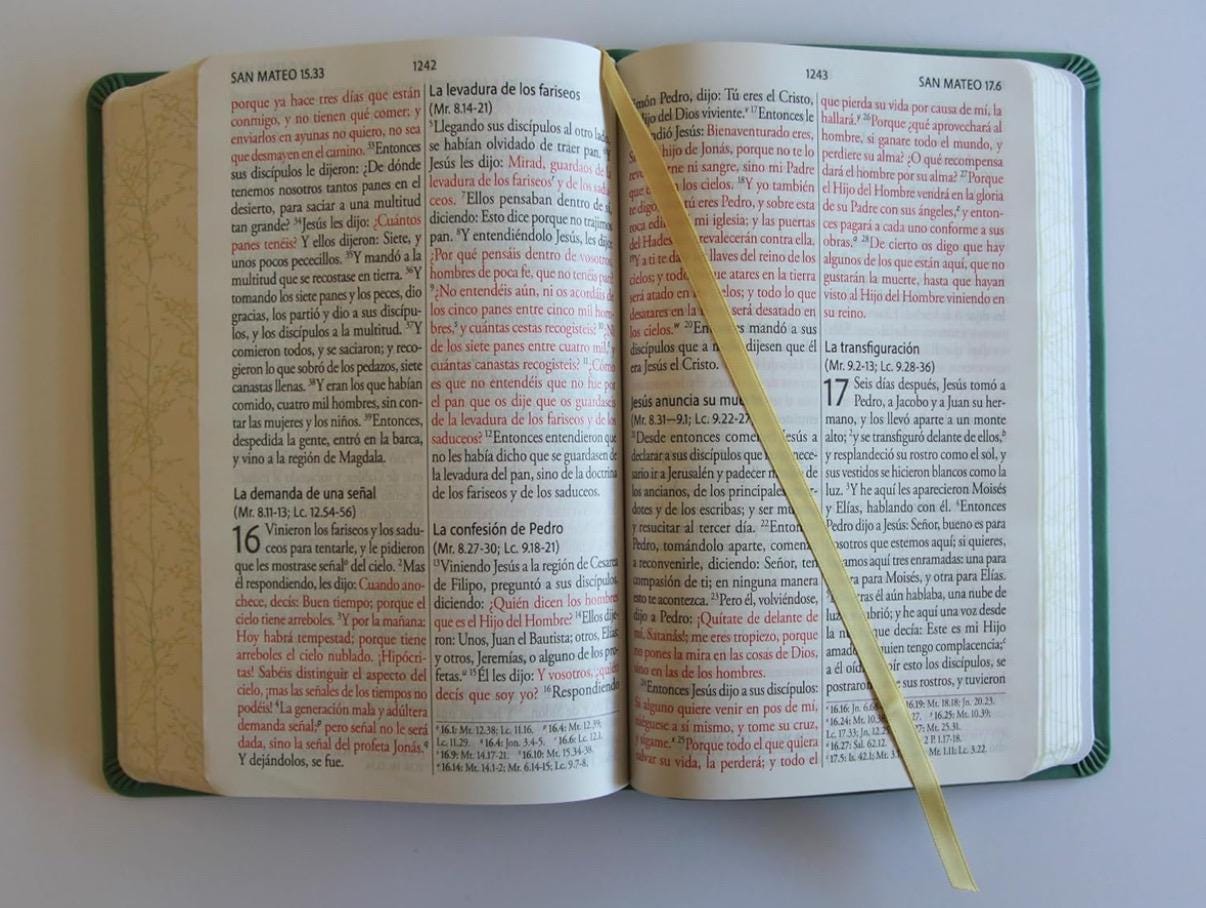 SAN MATEO 15.33
1242
porque ya hace tres días que están
conmigo, y no tienen qué comer; y
enviarlos en ayunas no quiero, no sea
que desmayen en el camino. 33Entonces
sus discípulos le dijeron: ¿De dónde
tenemos nosotros tantos panes en el
desierto, para saciar a una multitud
tan grande? 34Jesús les dijo: ¿Cuántos
panes tenéis? Y ellos dijeron: Siete, y
unos pocos pececillos. 35Y mandó a la
multitud que se recostase en tierra. 36Y
tomando los siete panes y los peces, dio
gracias, los partió y dio a sus discípu-
los, y los discípulos a la multitud. 37Y
comieron todos, y se saciaron; y reco-
gieron lo que sobró de los pedazos, siete
canastas llenas. 38Y eran los que habían
comido, cuatro mil hombres, sin con-
tar las mujeres y los niños. 39Entonces,
despedida la gente, entró en la barca,
y vino a la región de Magdala.
La demanda de una señal
(Mr. 8.11-13; Lc. 12.54-56)
16 Vinieron los fariseos y los sadu-
ceos para tentarle, y le pidieron
que les mostrase señal del cielo. 2Mas
él respondiendo, les dijo: Cuando ano-
chece, decís: Buen tiempo; porque el
cielo tiene arreboles. 3Y por la mañana:
Hoy habrá tempestad; porque tiene
arreboles el cielo nublado. ¡Hipócri-
tas! Sabéis distinguir el aspecto del
cielo, ¡mas las señales de los tiempos no
podéis! 4La generación mala y adúltera
demanda señal;p pero señal no le será
dada, sino la señal del profeta Jonás.q
Y dejándolos, se fue.
La levadura de los fariseos
(Mr. 8.14-21)
5Llegando sus discípulos al otro lado,
se habían olvidado de traer pan. Y
Jesús les dijo: Mirad, guardaos de la
levadura de los fariseosr y de los sadu-
ceos. 7Ellos pensaban dentro de sí,
diciendo: Esto dice porque no trajimos
pan. 8Y entendiéndolo Jesús, les dijo:
¿Por qué pensáis dentro de vosotros,
hombres de poca fe, que no tenéis pan?
9¿No entendéis aún, ni os acordáis de
los cinco panes entre cinco mil hom-
bres,s y cuántas cestas recogisteis? 10¿Ni
de los siete panes entre cuatro mil,t y
cuántas canastas recogisteis? 11¿Cómo
es que no entendéis que no fue por
el pan que os dije que os guardaseis
de la levadura de los fariseos y de los
saduceos? 12Entonces entendieron que
no les había dicho que se guardasen de
la levadura del pan, sino de la doctrina
de los fariseos y de los saduceos.
La confesión de Pedro
(Mr. 8.27-30; Lc. 9.18-21)
13Viniendo Jesús a la región de Cesarea
de Filipo, preguntó a sus discípulos,
diciendo: ¿Quién dicen los hombres
que es el Hijo del Hombre? 14Ellos dije-
ron: Unos, Juan el Bautista; otros, Elías;
y otros, Jeremías, o alguno de los pro-
fetas.u 15Él les dijo: Y vosotros, ¿quién
decís que soy yo? 16Respondiendo
16.1: Mt. 12.38; Lc. 11.16. p 16.4: Mt. 12.39;
Lc. 11.29. q 16.4: Jon. 3.4-5. r 16.6: Lc. 12.1.
s 16.9: Mt. 14.17-21. t 16.10: Mt. 15.34-38.
u 16.14: Mt. 14.1-2; Mr. 6.14-15; Lc. 9.7-8.
1243
SAN MATEO 17.6
Pedro, dijo: Tú eres el Cristo,
del Dios viviente.v 17Entonces le
Jesús: Bienaventurado eres,
hijo de Jonás, porque no te lo
ni sangre, sino mi Padre
que los cielos. 18Y yo también
te digo, tú eres Pedro, y sobre esta
roca mi iglesia; y las puertas
del Hades prevalecerán contra ella.
19Y a ti te llaves del reino de los
cielos; y que atares en la tierra
será atado en y todo lo que
desatares en la será desatado en
los cielos.w 20 mandó a sus
discípulos que a dijesen que él
era Jesús el Cristo.
Jesús anuncia su
(Mr. 8.31—9.1; Lc. 9.22-27)
21Desde entonces Jesús a
declarar a sus discípulos que
sario ir a Jerusalén y padecer de
los ancianos, de los principales
dotes y de los escribas; y ser
y resucitar al tercer día. 22
Pedro, tomándolo aparte,
a reconvenirle, diciendo: Señor, ten
compasión de ti; en ninguna manera
esto te acontezca. 23Pero él, volviéndose,
dijo a Pedro: ¡Quítate de delante de
mí, Satanás!; me eres tropiezo, porque
no pones la mira en las cosas de Dios,
sino en las de los hombres.
24Entonces Jesús dijo a sus discípulos:
Si alguno quiere venir en pos de mí,
niéguese a sí mismo, y tome su cruz,
y sígame.x 25Porque todo el que quiera
salvar su vida, la perderá; y todo el
que pierda su vida por causa de mí, la
hallará.y 26Porque ¿qué aprovechará al
hombre, si ganare todo el mundo, y
perdiere su alma? ¿O qué recompensa
dará el hombre por su alma? 27Porque
el Hijo del Hombre vendrá en la gloria
de su Padre con sus ángeles,z y enton-
ces pagará a cada uno conforme a sus
obras.a 28De cierto os digo que hay
algunos de los que están aquí, que no
gustarán la muerte, hasta que hayan
visto al Hijo del Hombre viniendo en
su reino.
La transfiguración
(Mr. 9.2-13; Lc. 9.28-36)
17 Seis días después, Jesús tomó a
Pedro, a Jacobo y a Juan su her-
mano, y los llevó aparte a un monte
alto; 2y se transfiguró delante de ellos,b
y resplandeció su rostro como el sol, y
sus vestidos se hicieron blancos como la
luz. 3Y he aquí les aparecieron Moisés
y Elías, hablando con él. 4Entonces
Pedro dijo a Jesús: Señor, bueno es para
nosotros que estemos aquí; si quieres,
aquí tres enramadas: una para
para Moisés, y otra para Elías.
él aún hablaba, una nube de
luz y he aquí una voz desde
la que decía: Este es mi Hijo
amado, quien tengo complacencia;c
a él esto los discípulos, se
postraron sus rostros, y tuvieron
v 16.16: Jn. 16.19: Mt. 18.18; Jn. 20.23.
x 16.24: Mt. y 16.25: Mt. 10.39;
Lc. 17.33; Jn. Mt. 25.31.
a 16.27: Sal. 62.12. 2 P. 1.17-18.
c 17.5: Is. 42.1; Mt. Mr. 1.11; Lc. 3.22.